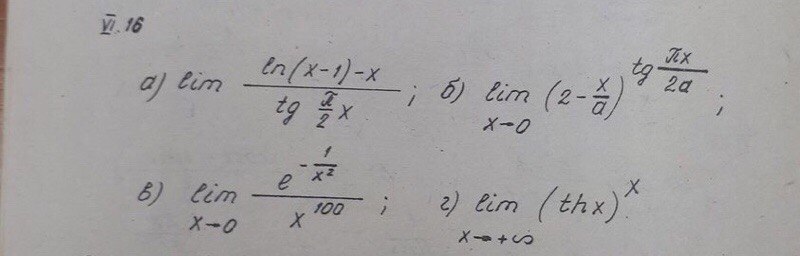 VI.16
а) lim (ln(x-1)-x)/(tg π/2 x); б) lim x→0 (2-x/a)^(tg πx/2a);
в) lim x→0 e^(-1/x²)/x^100; г) lim x→+∞ (thx)^x.